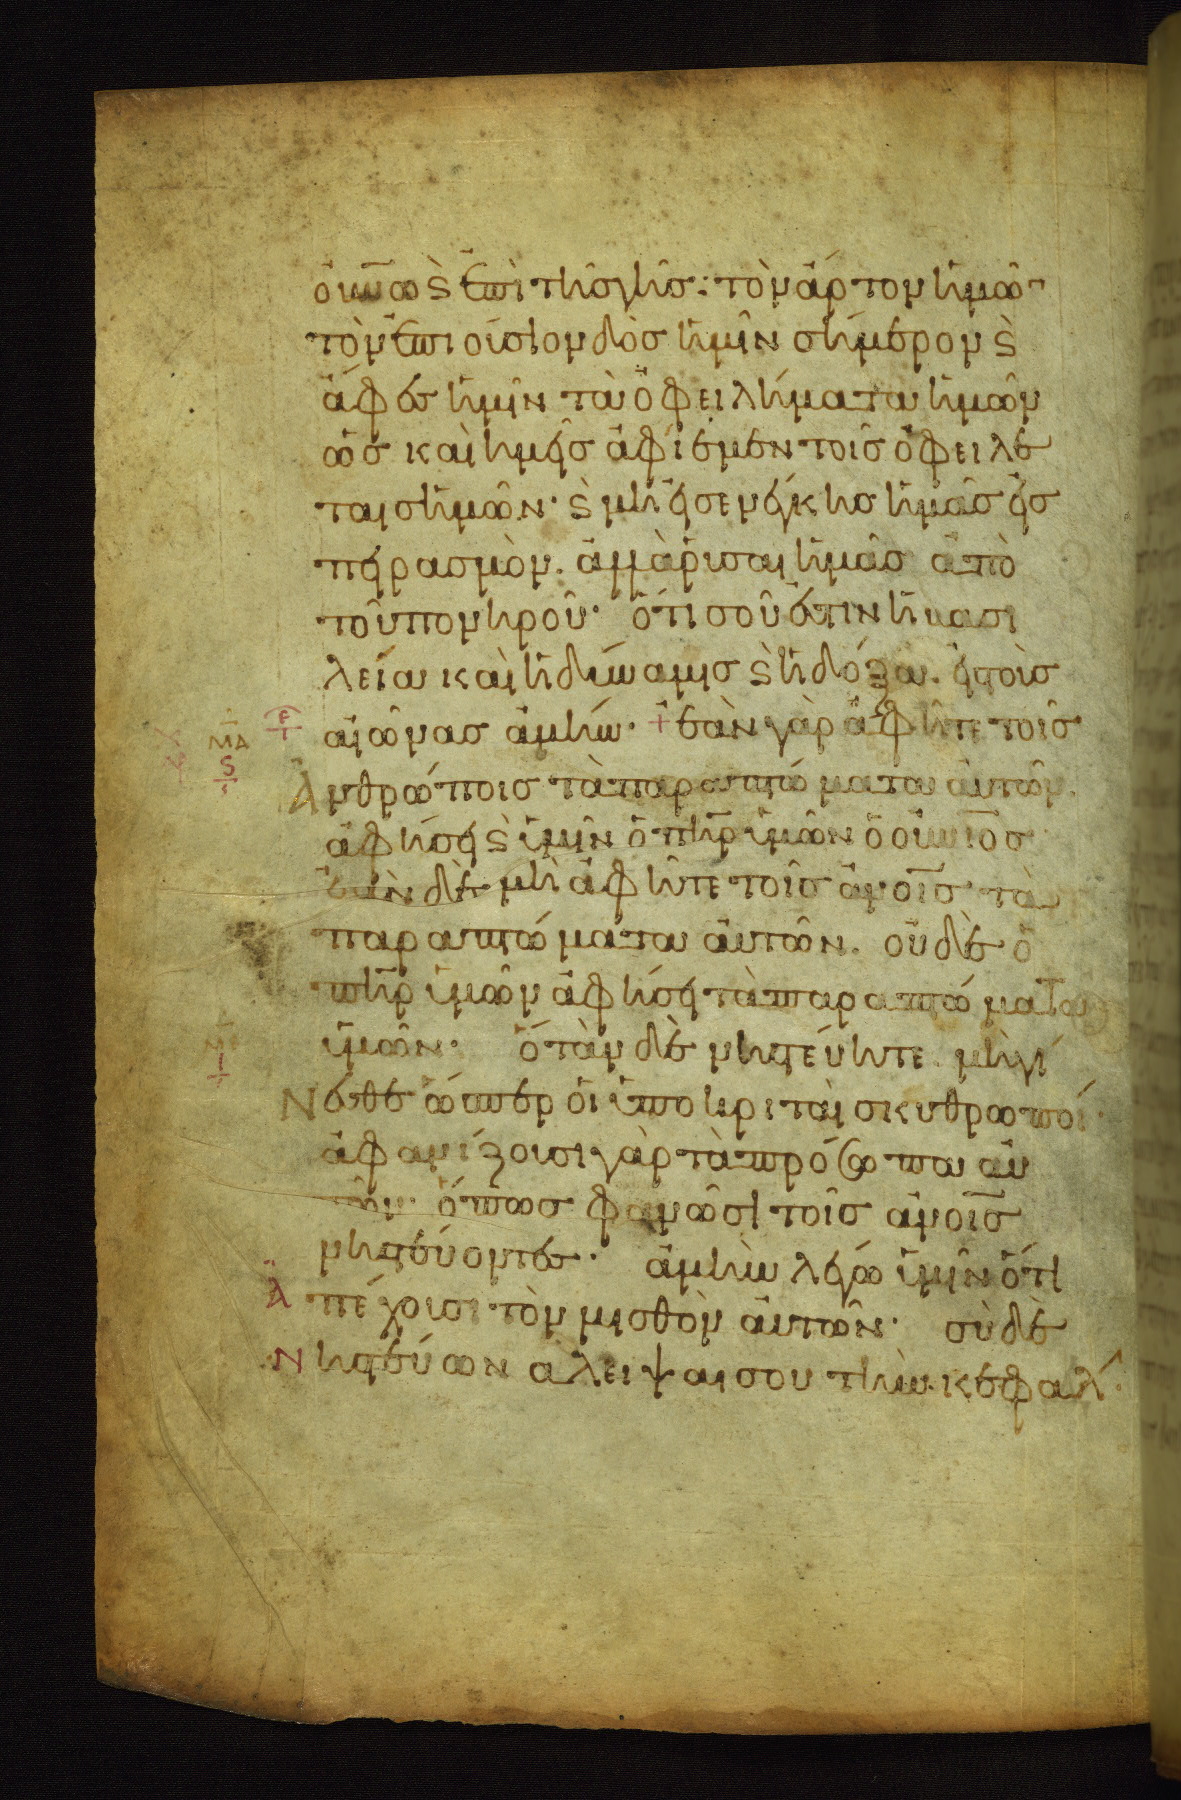 ὀυνῶ ϛ ἐπὶ τῆς γῆς: τὸν ἄρτον ἡμῶ
τὸν ἐπιούσιον δὸς ἡμῖν σήμερον ϛ
ἄφες ἡμῖν τὰ ὀφειλήματα ἡμῶν
ὡς καὶ ἡμεῖς ἀφίεμεν τοῖς ὀφειλέ
ταις ἡμῶν· ϛ μὴ εἰσενέγκης ἡμᾶς εἰς
πειρασμόν. ἀλλὰ ρῖσαι ἡμᾶς ἀπὸ
τοῦ πονηροῦ· ὅτι σοῦ ἐστιν ἡ βασι
λεία καὶ ἡ δύναμις ϛ ἡ δόξα. εἰς τοὺς
αἰῶνας ἀμήν· ἐὰν γὰρ ἀφῆτε τοῖς
Ἀνθρώποις τὰ παραπτώματα αὐτῶν.
ἀφήσει ϛ ὑμῖν ὁ πηρ ὑμῶν ὁ οὐνιος
ἐὰν δὲ μὴ ἀφῆτε τοῖς ἀνοις τὰ
παραπτώματα αὐτῶν. οὐδὲ ὁ
πηρ ὑμῶν ἀφήσει τὰ παραπτώματα
ὑμῶν· ὅταν δὲ νηστεύητε. μὴ γί
Νεσθε ὥσπερ οἱ ὑποκριταὶ σκυθρωποί·
ἀφανίζουσι γὰρ τὰ πρόσωπα αὐ
τῶν· ὅπως φανῶσι τοῖς ἀνοις
νηστεύοντες· ἀμὴν λέγω ὑμῖν ὅτι
Ἀπέχουσι τὸν μισθὸν αὐτῶν· σὺ δὲ
Νηστεύων ἄλειψαι σου τὴν κεφαλ